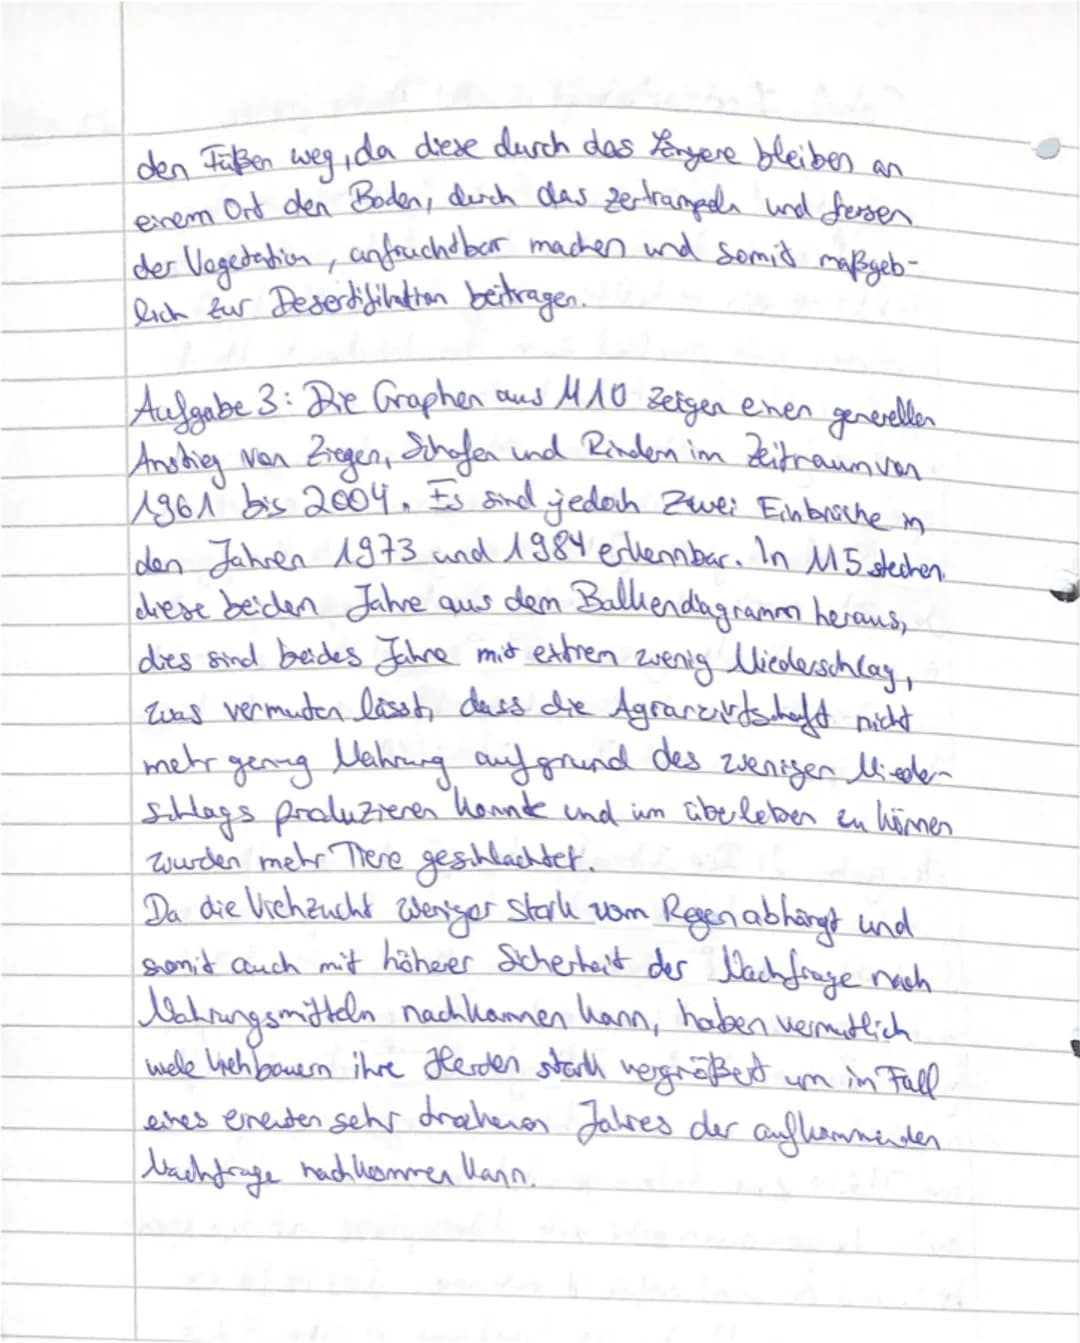 den Füßen weg, da diese durch das längere bleiben an
einem Ort den Boden, durch das zertrampeln und fressen
der Vegetation, unfruchtbar machen und somit maßgeb-
lich zur Desertifikation beitragen.
Aufgabe 3: Die Graphen aus M10 zeigen einen generellen
Anstieg von Ziegen, Schafen und Rindern im Zeitraum von
1961 bis 2004. Es sind jedoch zwei Einbrüche in
den Jahren 1973 und 1984 erkennbar. In M5 stechen
diese beiden Jahre aus dem Balkendiagramm heraus,
dies sind beides Jahre mit extrem wenig Niederschlag,
was vermuten lässt, dass die Agrarwirtschaft nicht
mehr genug Nahrung aufgrund des wenigen Nieder-
schlags produzieren konnte und um überleben zu können
wurden mehr Tiere geschlachtet.
Da die Viehzucht weniger stark vom Regen abhängt und
somit auch mit höherer Sicherheit der Nachfrage nach
Nahrungsmitteln nachkommen kann, haben vermutlich
viele Viehbauern ihre Herden stark vergrößert um im Fall
eines erneuten sehr trockenen Jahres der aufkommenden
Nachfrage nachkommen kann.